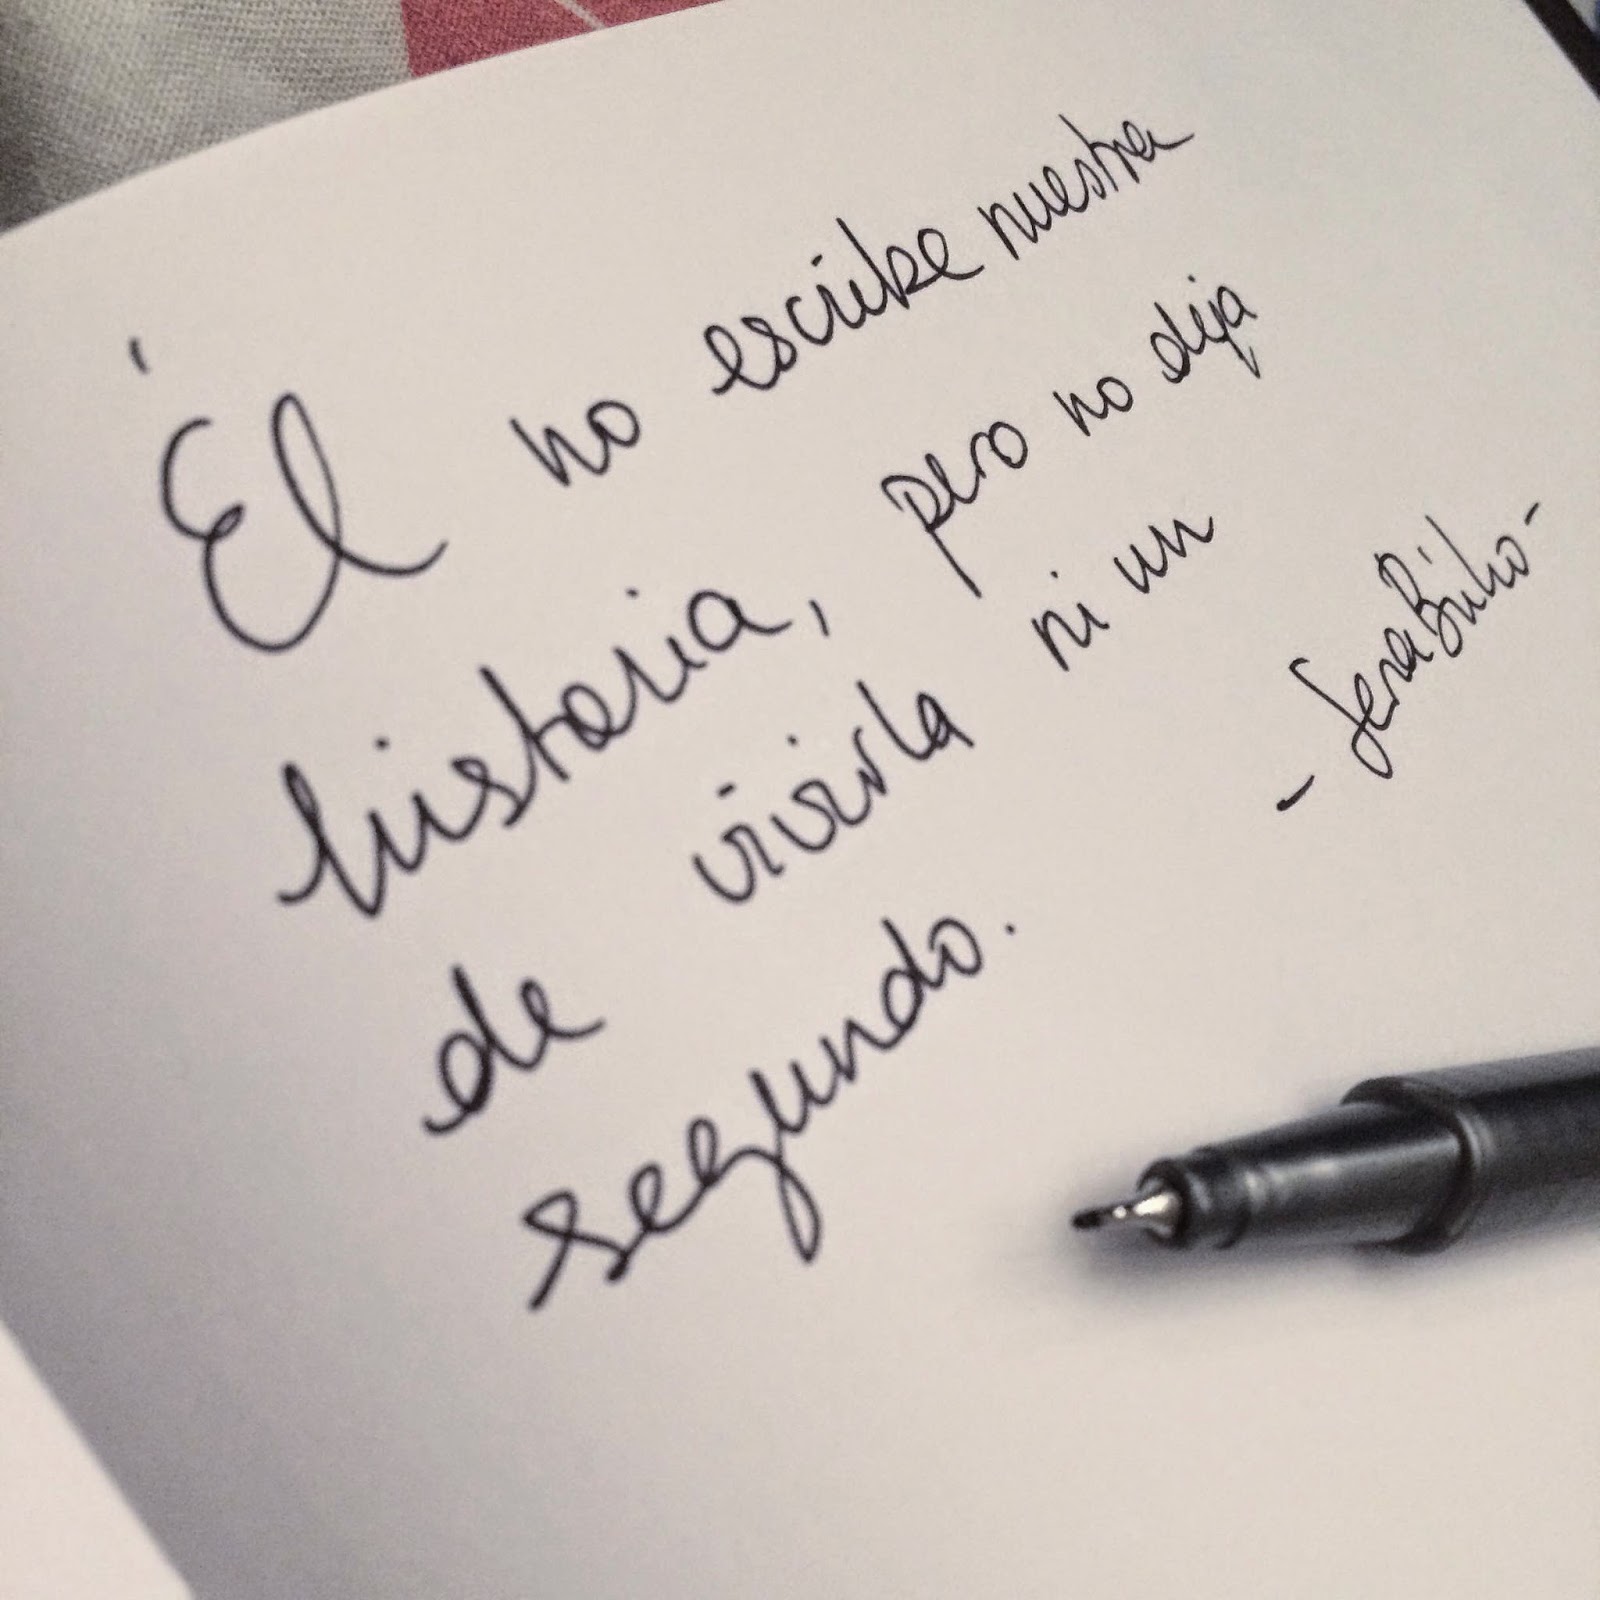 Él no escribe nuestra
historia, pero no deja
de vivirla ni un
segundo.
- SeraBúho -